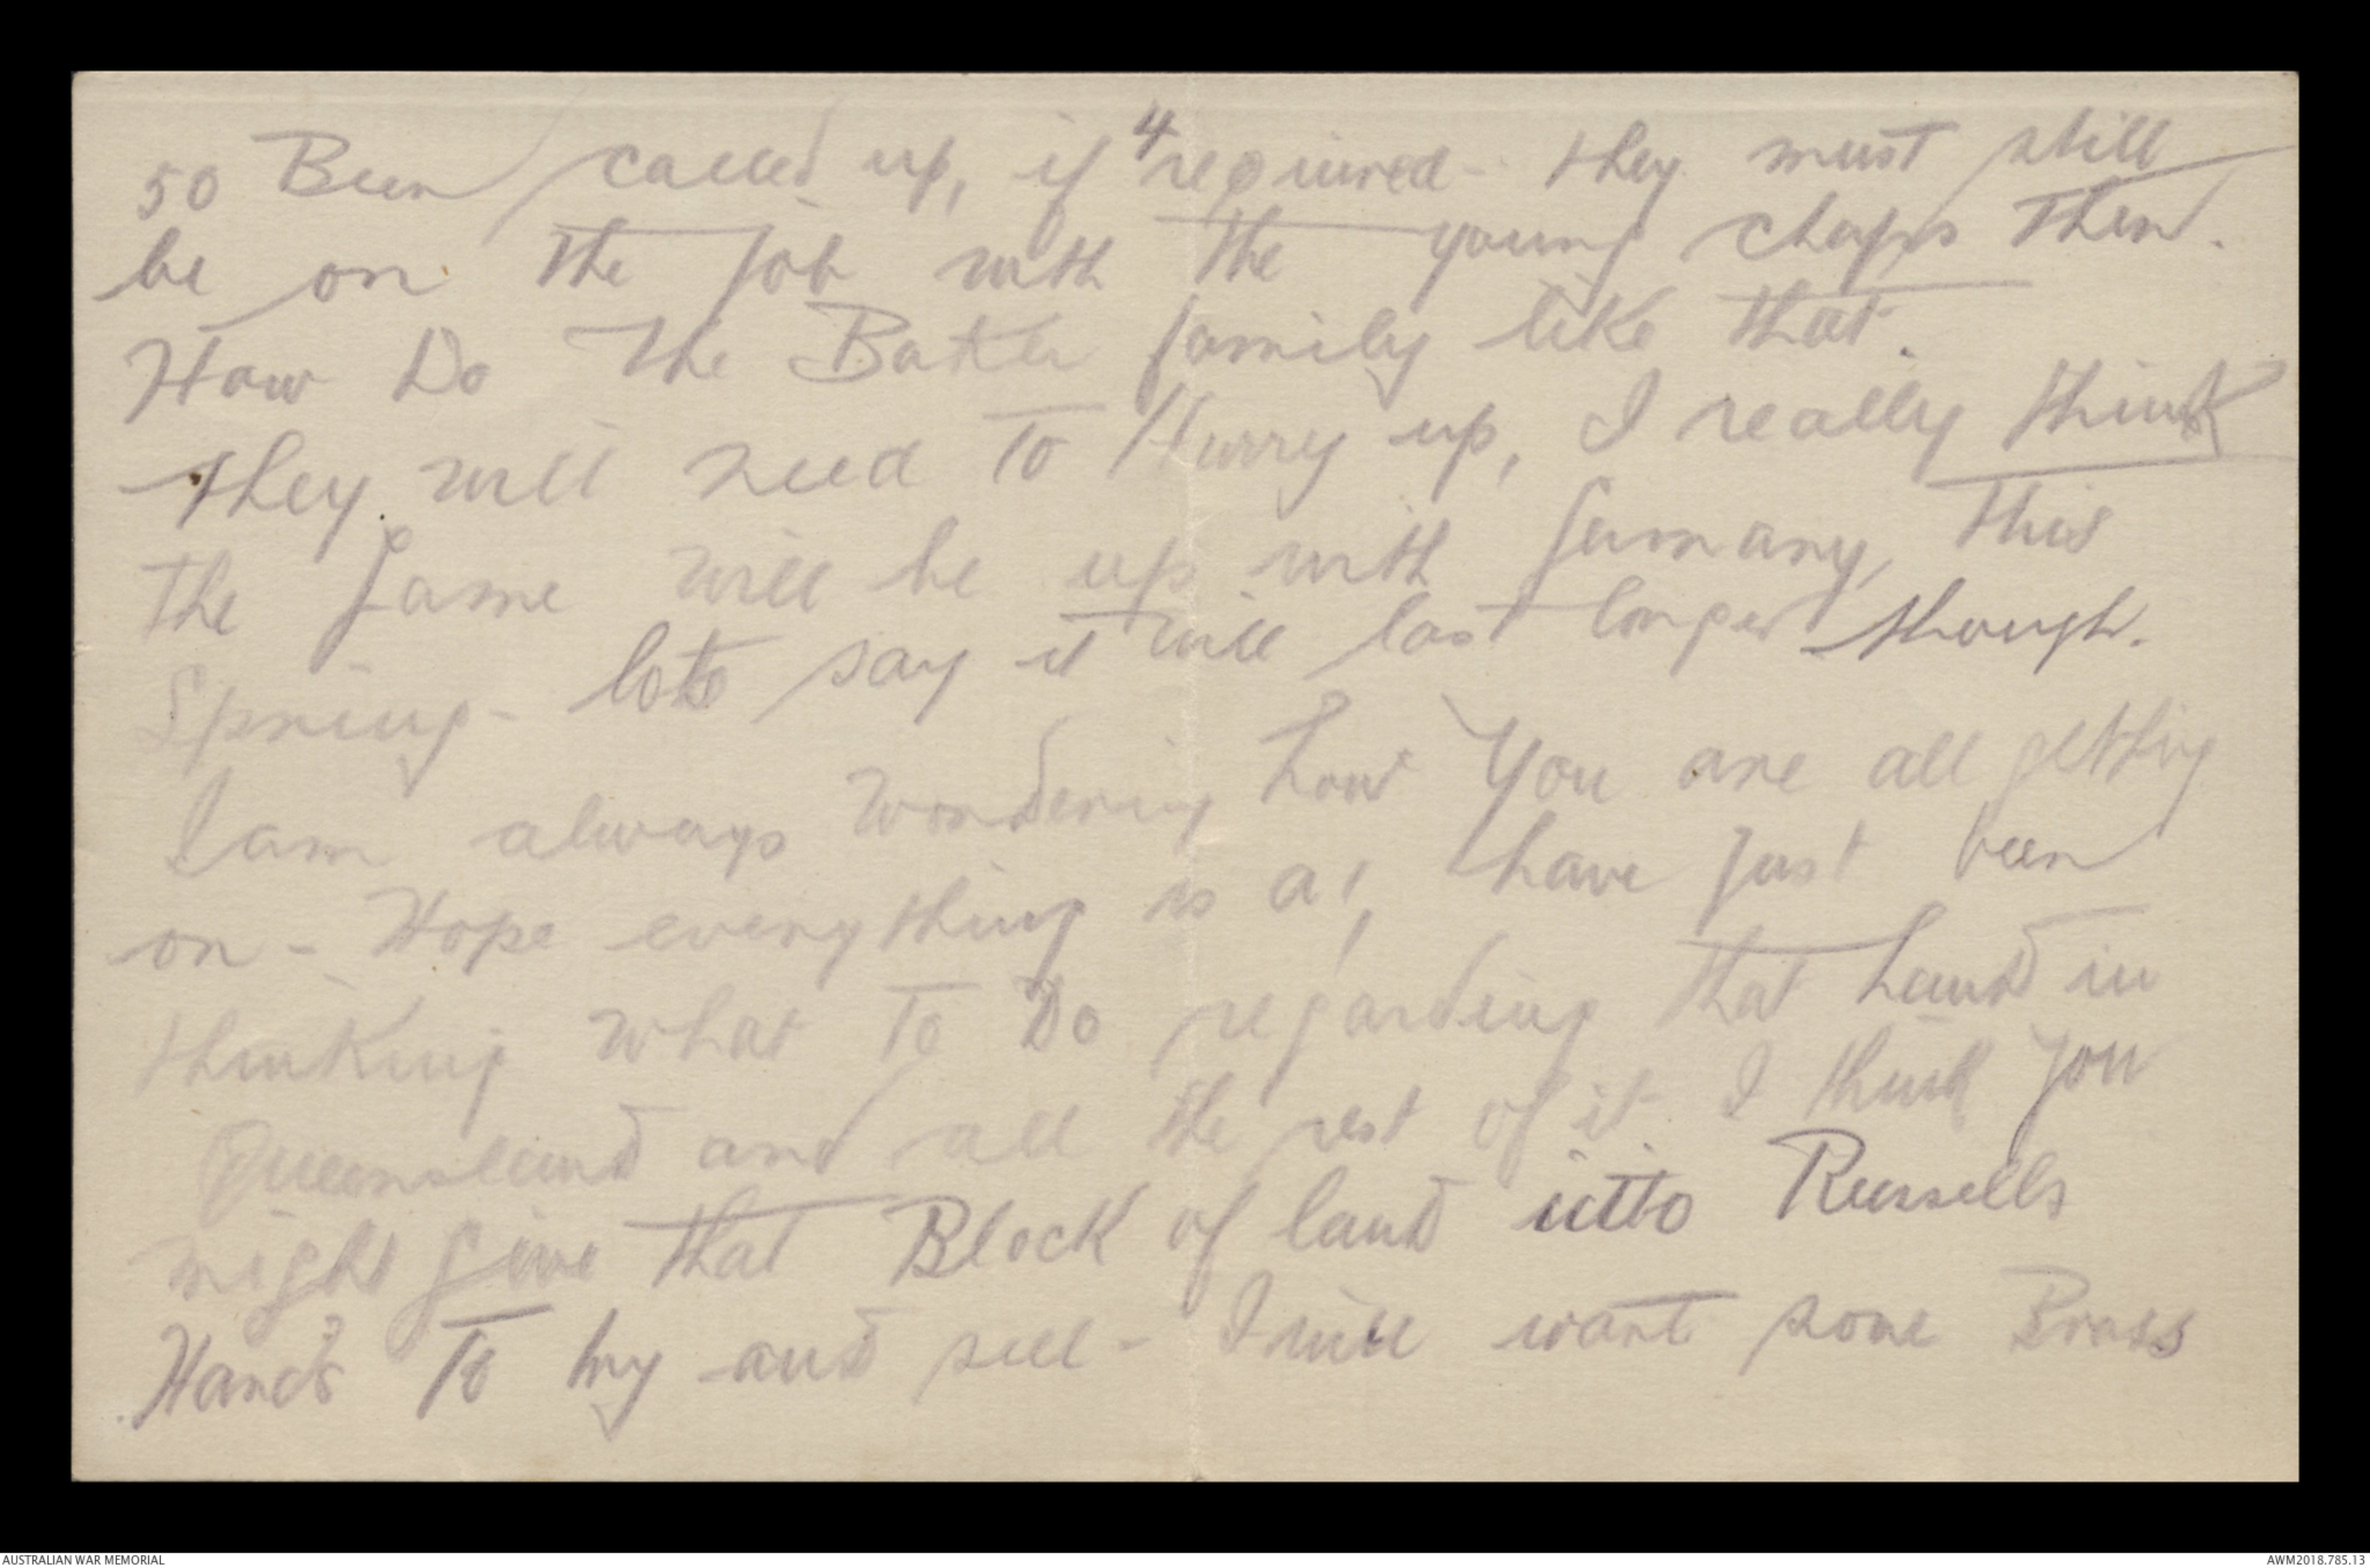 4
50 Been called up, if required - they must still
be on the job with the young chaps then.
How Do The family like that.
They will need To Hurry up, I really think
The Game will be up with Germany, This
Spring - lots say it will last longer though.
I am always wondering how You are all getting
on - Hope everything is a1, have just been
thinking what To Do regarding that Land in
Queensland and all the rest of it. I think you
might give that Block of land into Russells
Hands To try and sell - I will want some Brass
AUSTRALIAN WAR MEMORIAL
AWM2018.785.13